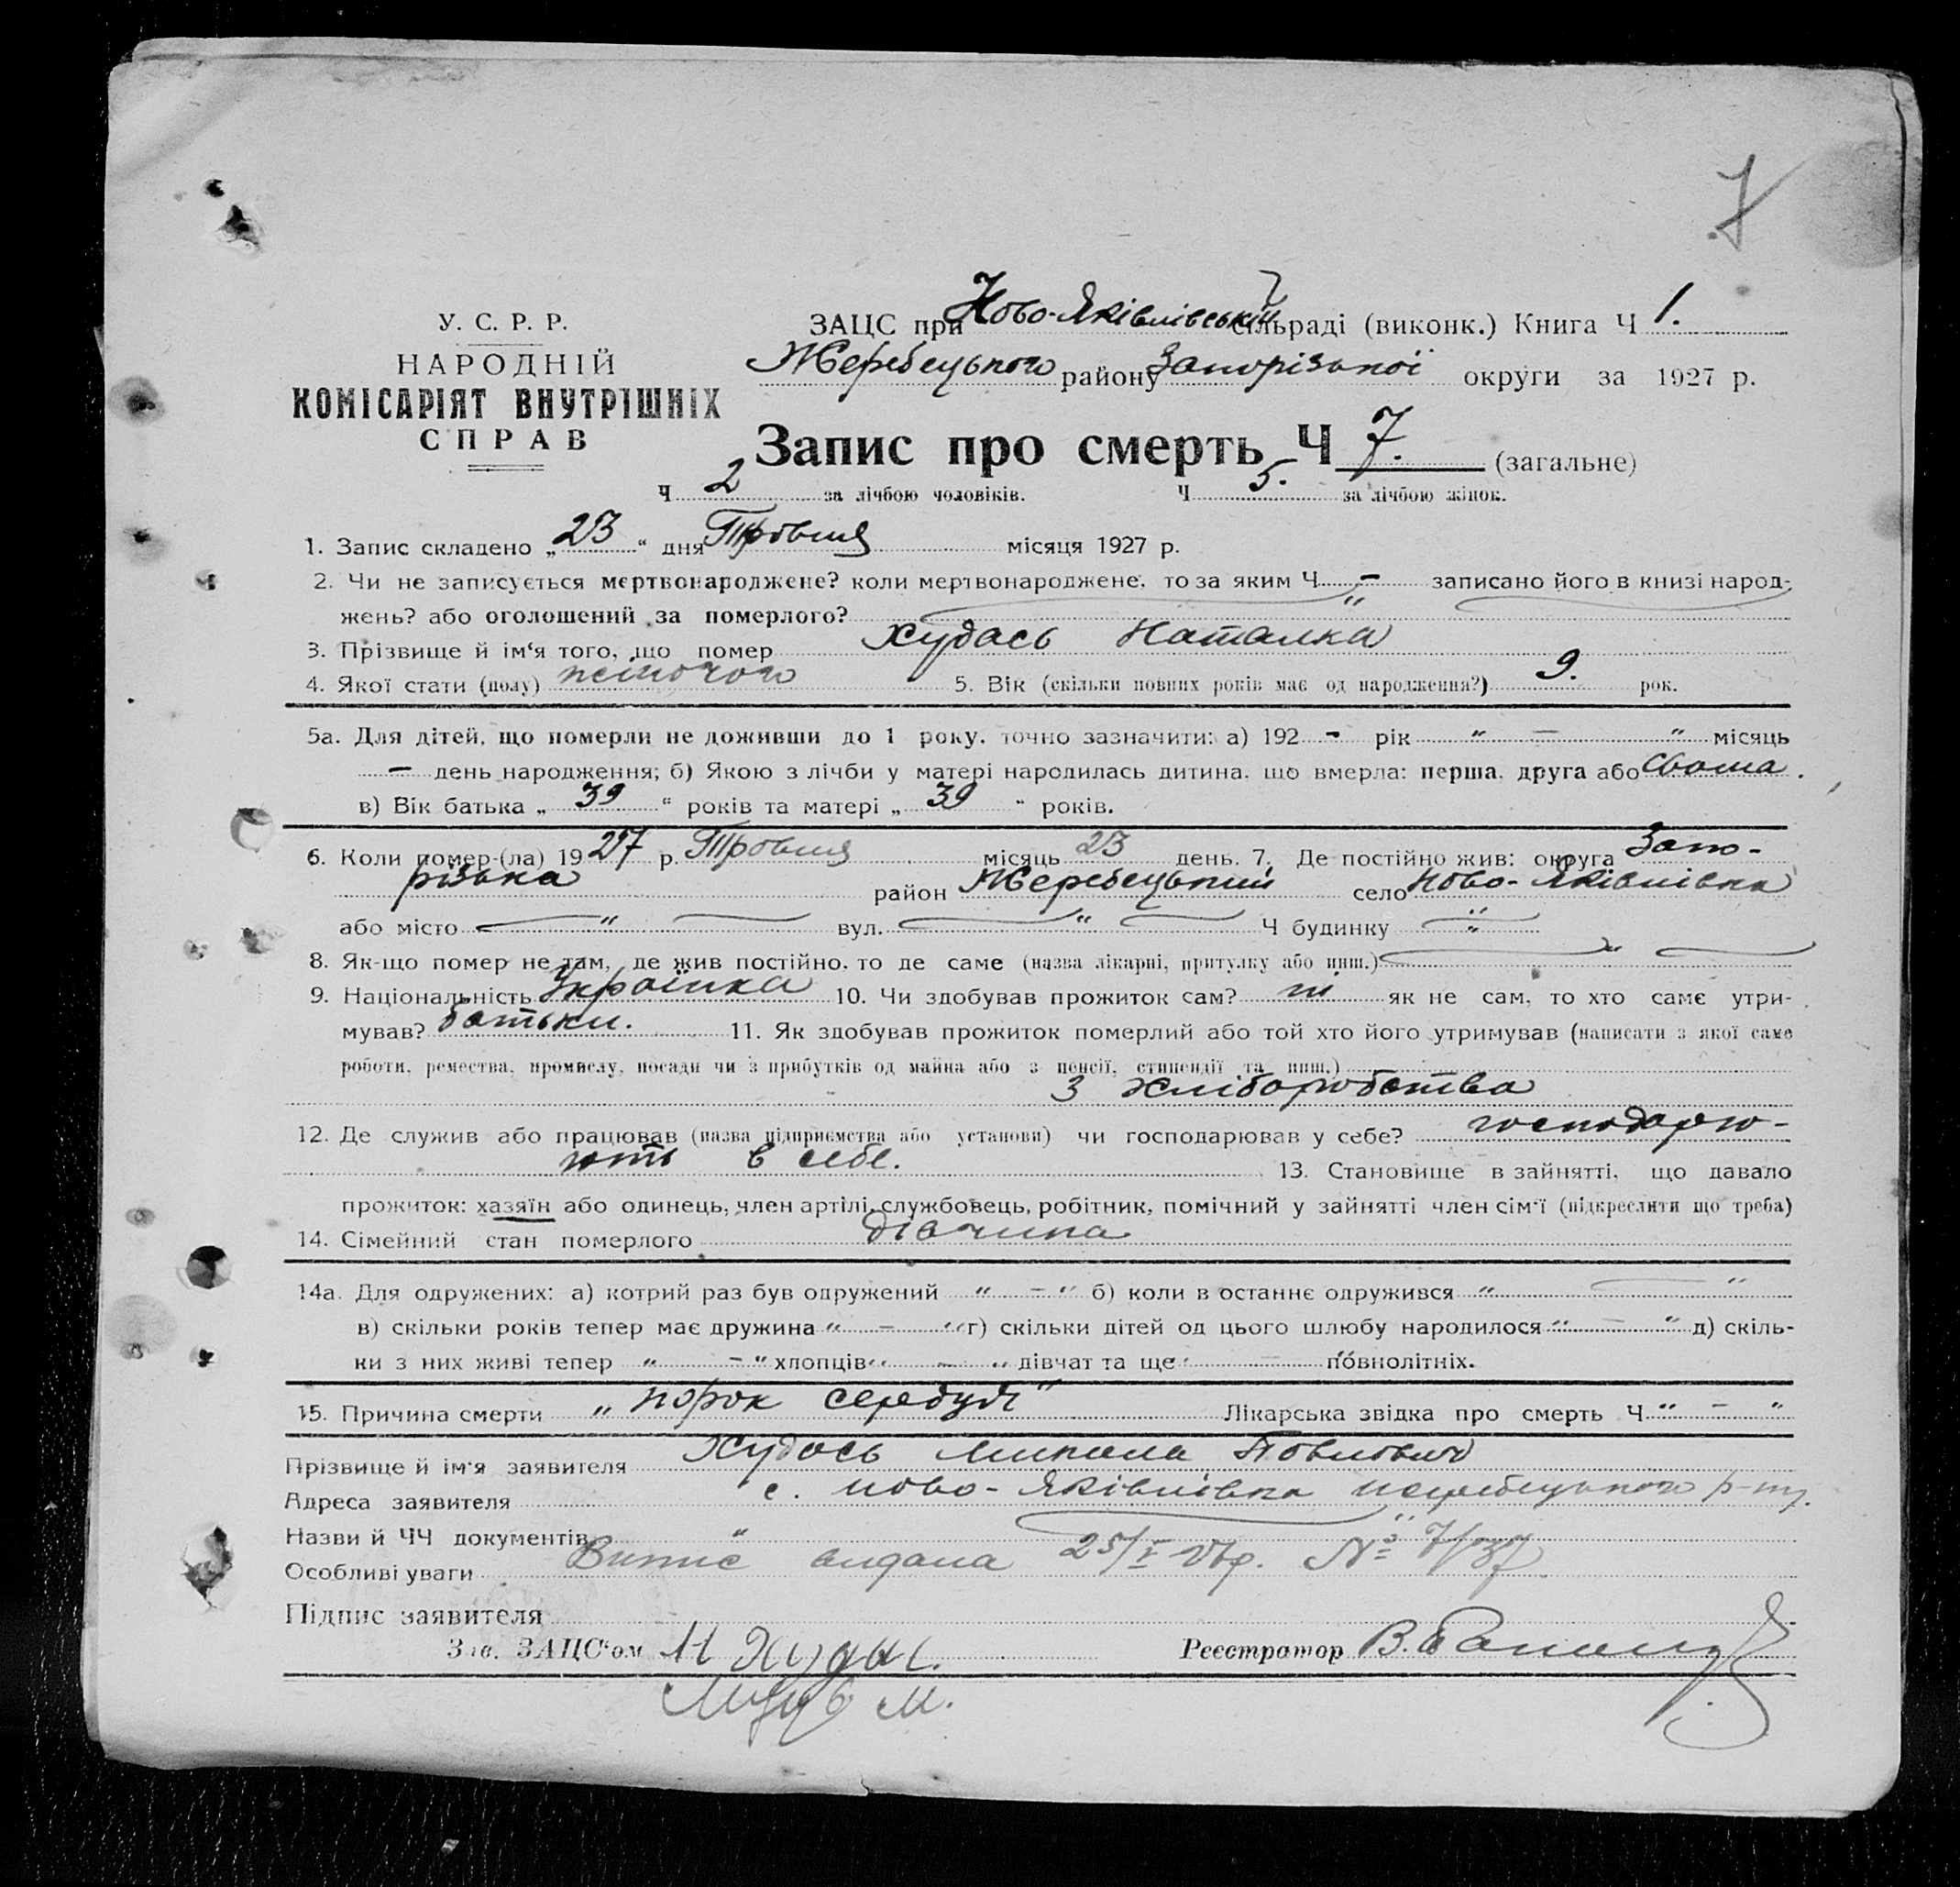 7
У. С. Р. Р.
НАРОДНІЙ
КОМІСАРІЯТ ВНУТРІШНІХ
СПРАВ
ЗАЦС при Ново-Яківлівській сільраді (виконк.) Книга Ч 1.
Жеребецького району Запорізької округи за 1927 р.
Запис про смерть Ч 7. (загальне)
Ч 2 за лічбою чоловіків. Ч 5. за лічбою жінок.
1. Запис складено „ 23 “ дня Травня місяця 1927 р.
2. Чи не записується мертвонароджене? коли мертвонароджене, то за яким Ч - записано його в книзі народ-
жень? або оголошений за померлого? "
3. Прізвище й ім‘я того, що помер Худась Наталка
4. Якої стати (полу) жіночого 5. Вік (скільки повних років має од народження?) 9. рок.
5а. Для дітей, що померли не доживши до 1 року, точно зазначити: а) 192 - рік " — " місяць
— день народження; б) Якою з лічби у матері народилась дитина, що вмерла: перша, друга або Сьома.
в) Вік батька „ 39 “ років та матері „ 39 “ років.
6. Коли помер-(ла) 1927 р. Травня місяць 23 день. 7. Де постійно жив: округа Запо-
різька район Жеребецький село Ново-Яківлівка
або місто " вул. " Ч будинку "
8. Як-що помер не там, де жив постійно, то де саме (назва лікарні, притулку або инш.) "
9. Національність Українка 10. Чи здобував прожиток сам? ні як не сам, то хто саме утри-
мував? батьки. 11. Як здобував прожиток померлий або той хто його утримував (написати з якої саме
роботи, ремества, промислу, посади чи з прибутків од майна або з пенсії, стипендії та инш.)
З хліборобства
12. Де служив або працював (назва підприємства або установи) чи господарював у себе? господарю-
ють в себе. 13. Становище в зайнятті, що давало
прожиток: хазяїн або одинець, член артілі, службовець, робітник, помічний у зайнятті член сім‘ї (підкреслити що треба)
14. Сімейний стан померлого дівчина
14а. Для одружених: а) котрий раз був одружений " - " б) коли в останнє одружився " "
в) скільки років тепер має дружина " - " г) скільки дітей од цього шлюбу народилося " — " д) скіль-
ки з них живі тепер " - " хлопців " — " дівчат та ще " — " повнолітніх.
15. Причина смерти „ порок середця" Лікарська звідка про смерть Ч " - "
Прізвище й ім‘я заявителя Худась Микола Павлович
Адреса заявителя с. Ново-Яківлівка Жеребецького р-ну.
Назви й ЧЧ документів "
Особливі уваги Випис видана 25/V 27р. № 7/37
Підпис заявителя
Зав. ЗАЦС‘ом Н Худас.
Реєстратор В.
М.